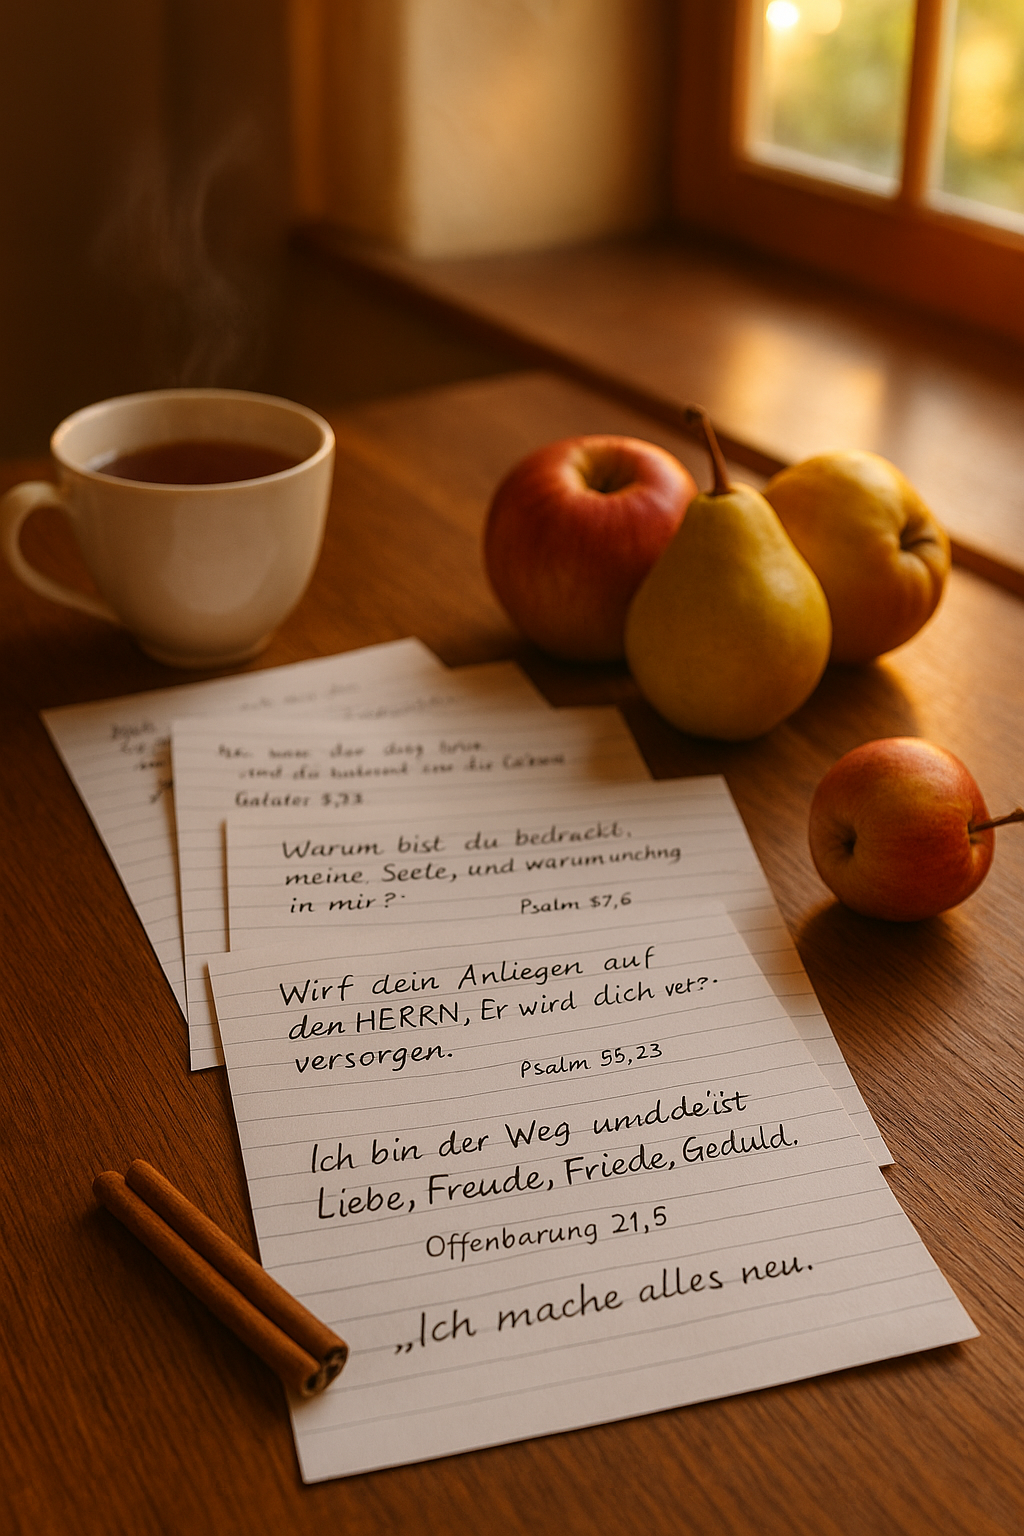 Galater 5,23
Warum bist du bedrackt,
meine. Seele, und warum unchng
in mir?
Psalm $7,6
Wirf dein Anliegen auf
den HERRN, Er wird dich vet?.
versorgen.
Psalm 55,23
Ich bin der Weg umd.de'ist
Liebe, Freude, Friede, Geduld.
Offenbarung 21,5
„Ich mache alles neu.